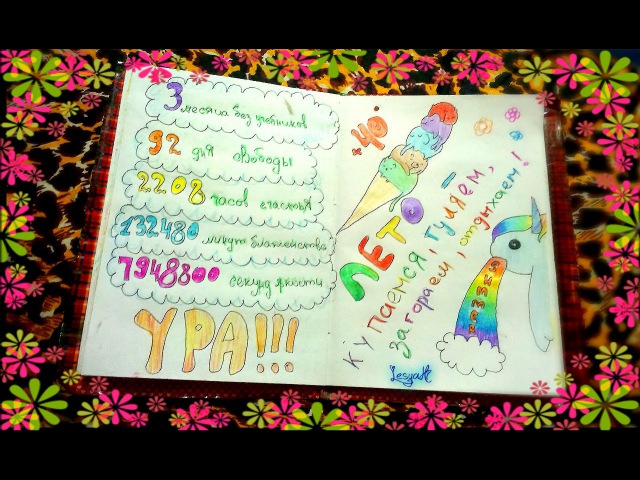 3 месяца без учебников
92 дня свободы
2208 часов счастья
132480 минут блаженства
7948800 секунд яркости
УРА!!!
+40
ЛЕТО –
купаемся, гуляем,
загораем, отдыхаем!
LesyaK